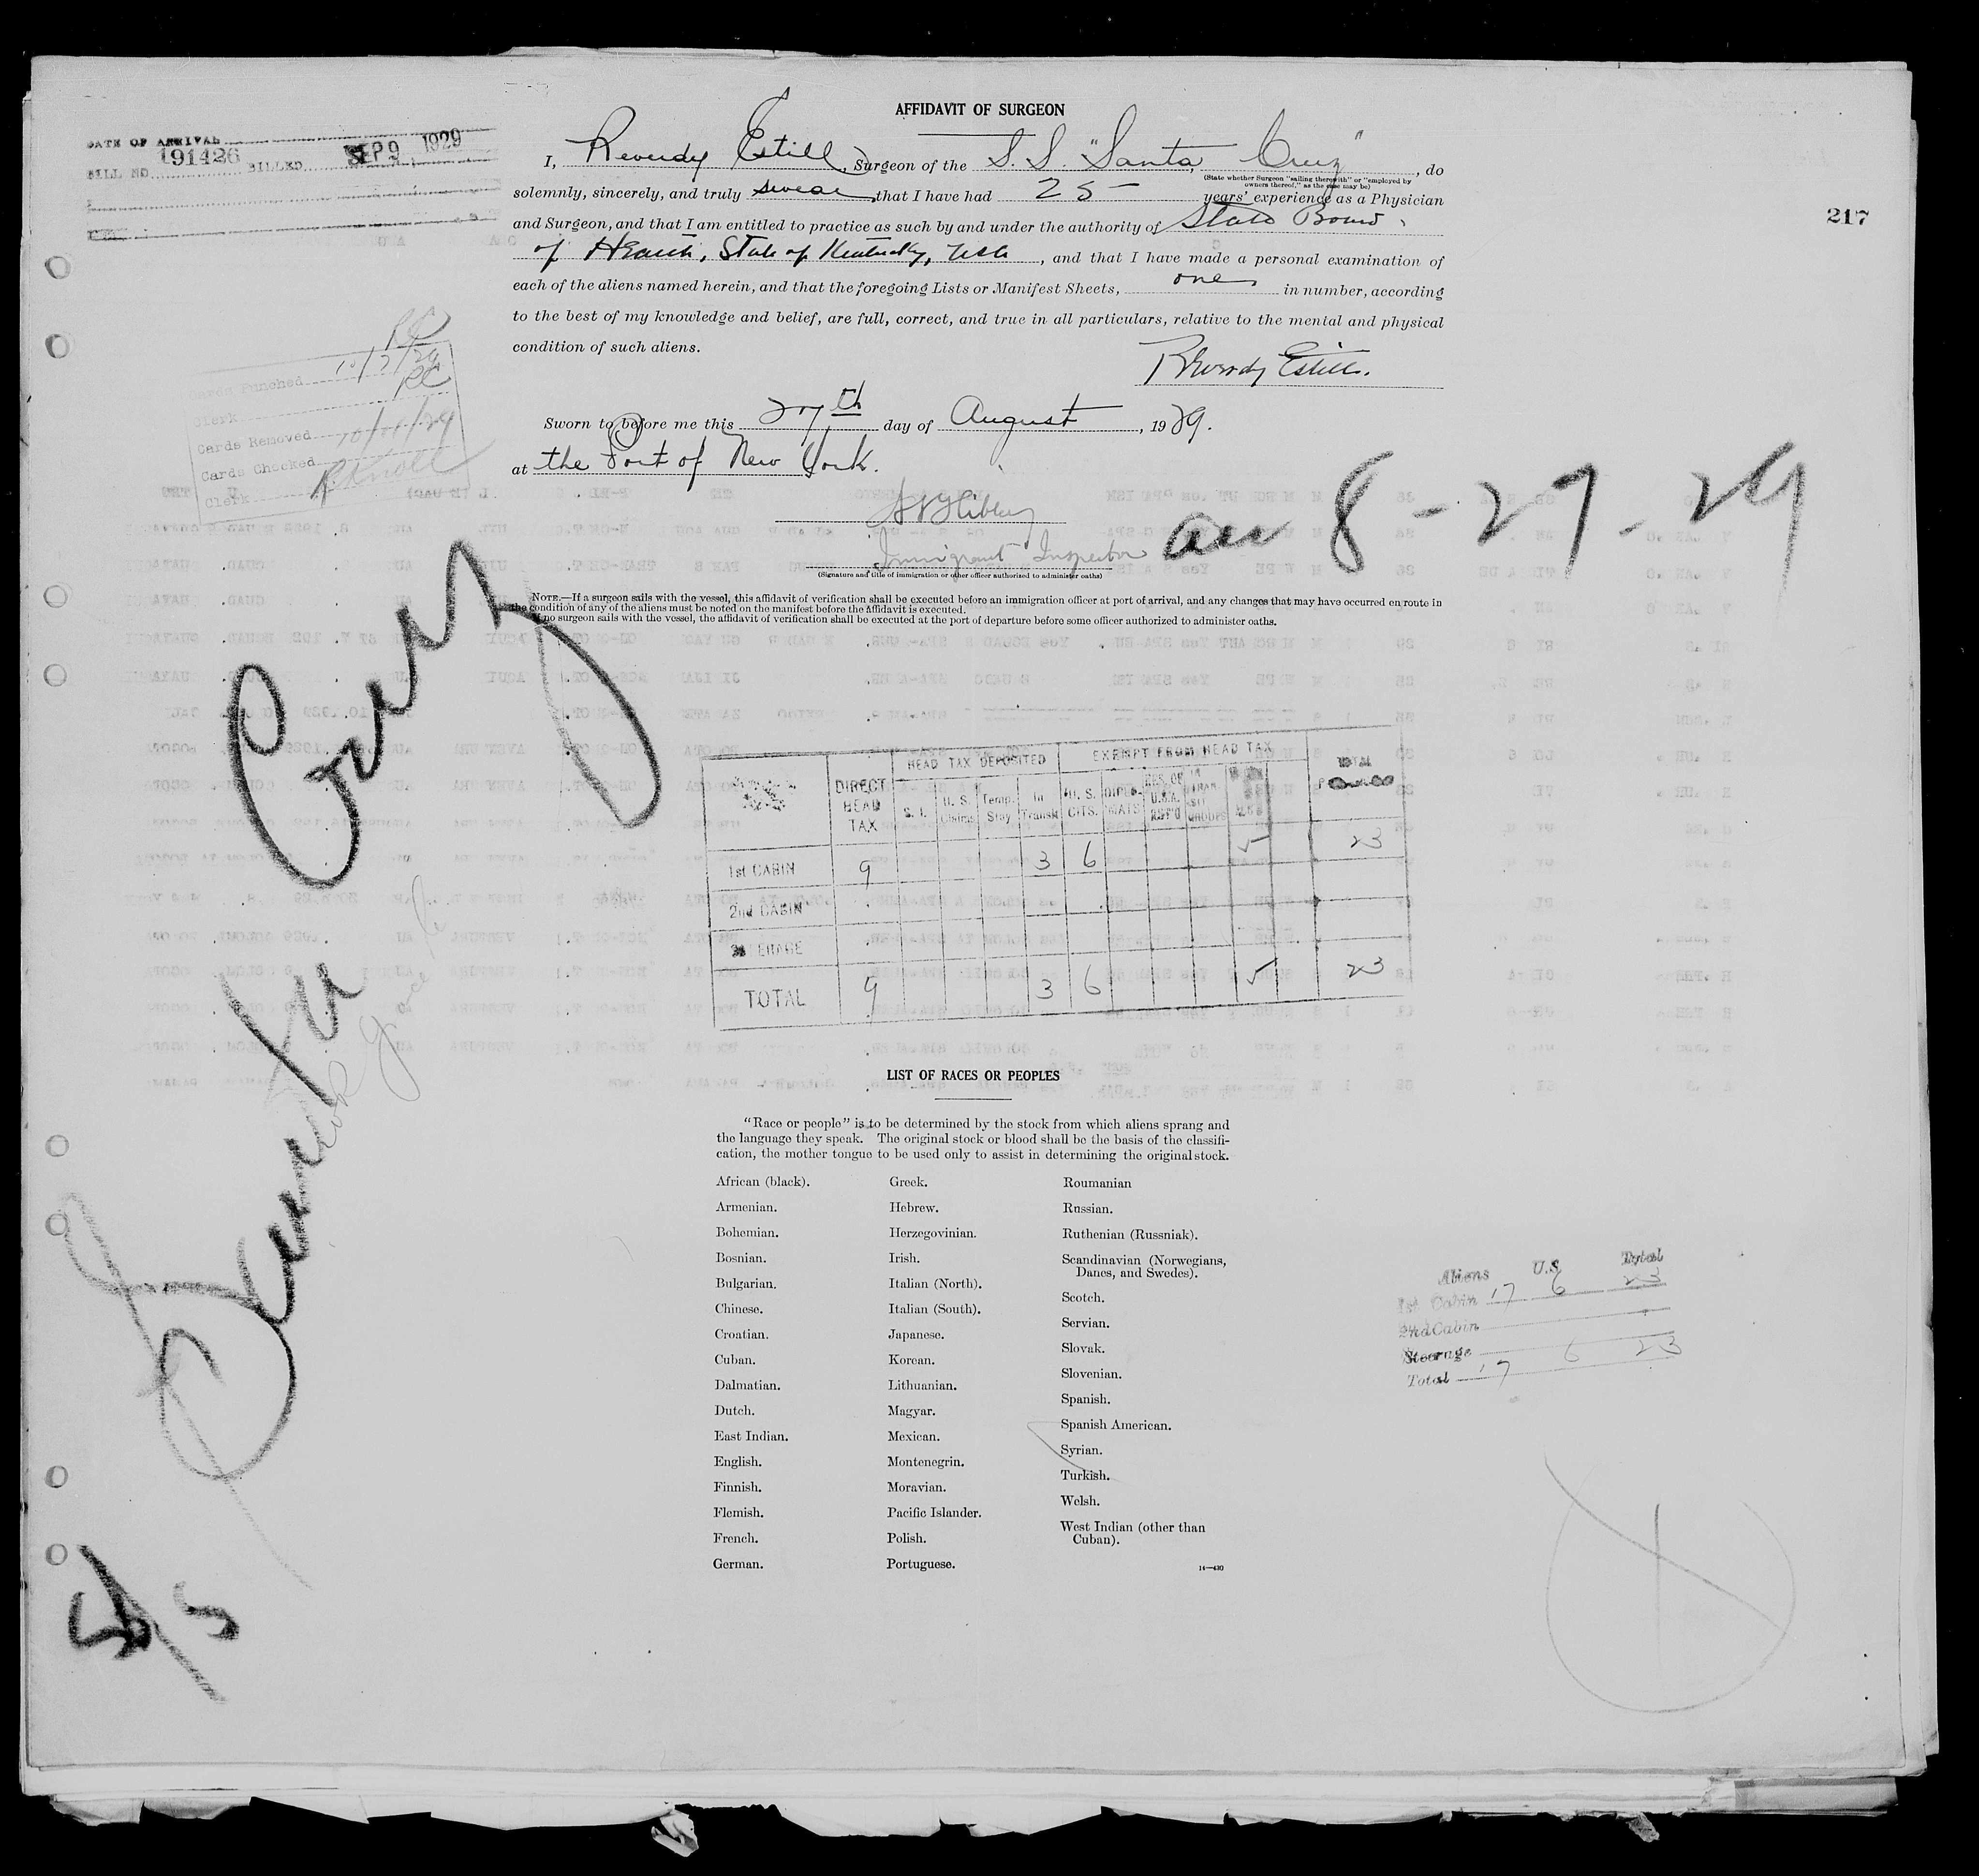 AFFIDAVIT OF SURGEON
DATE OF ARRIVAL
BILL NO. 191426 BILLED SEP 9 1929
217
I, Reverdy Estill, Surgeon of the S. S. "Santa Cruz", do
(State whether Surgeon "sailing therewith" or "employed by
owners thereof," as the case may be)
solemnly, sincerely, and truly swear that I have had 25 years' experience as a Physician
and Surgeon, and that I am entitled to practice as such by and under the authority of State Board
of Health, State of Kentucky, USA, and that I have made a personal examination of
each of the aliens named herein, and that the foregoing Lists or Manifest Sheets, one in number, according
to the best of my knowledge and belief, are full, correct, and true in all particulars, relative to the mental and physical
condition of such aliens.
Reverdy Estill.
Sworn to before me this 27th day of August, 1929.
at the Port of New York.
Immigrant Inspector
(Signature and title of immigration or other officer authorized to administer oaths)
arr 8-27-29
RC
Cards Punched 10/7/29
Clerk RC
Cards Removed
Cards Checked
Clerk
NOTE.—If a surgeon sails with the vessel, this affidavit of verification shall be executed before an immigration officer at port of arrival, and any changes that may have occurred en route in
the condition of any of the aliens must be noted on the manifest before the affidavit is executed.
If no surgeon sails with the vessel, the affidavit of verification shall be executed at the port of departure before some officer authorized to administer oaths.
Santa Cruz
DIRECT HEAD TAX
HEAD TAX DEPOSITED
EXEMPT FROM HEAD TAX
S. I. U. S. Temp. Stay In Transit U. S. CITS. DIPLO-MATS RES. OF U.S.A. TOTAL
1st CABIN 9 3 6 5 23
2nd CABIN
TOTAL 9 3 6 5 23
LIST OF RACES OR PEOPLES
"Race or people" is to be determined by the stock from which aliens sprang and
the language they speak. The original stock or blood shall be the basis of the classifi-
cation, the mother tongue to be used only to assist in determining the original stock.
African (black).
Armenian.
Bohemian.
Bosnian.
Bulgarian.
Chinese.
Croatian.
Cuban.
Dalmatian.
Dutch.
East Indian.
English.
Finnish.
Flemish.
French.
German.
Greek.
Hebrew.
Herzegovinian.
Irish.
Italian (North).
Italian (South).
Japanese.
Korean.
Lithuanian.
Magyar.
Mexican.
Montenegrin.
Moravian.
Pacific Islander.
Polish.
Portuguese.
Roumanian
Russian.
Ruthenian (Russniak).
Scandinavian (Norwegians,
Danes, and Swedes).
Scotch.
Servian.
Slovak.
Slovenian.
Spanish.
Spanish American.
Syrian.
Turkish.
Welsh.
West Indian (other than
Cuban).
14—430
Aliens U.S. Total
1st Cabin 17 6 23
2nd Cabin
Steerage
Total 17 6 23